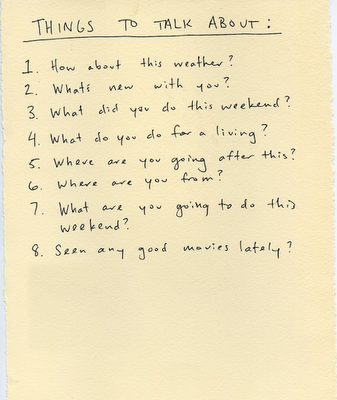 THINGS TO TALK ABOUT:
1. How about this weather?
2. Whats new with you?
3. What did you do this weekend?
4. What do you do for a living?
5. Where are you going after this?
6. Where are you from?
7. What are you going to do this
weekend?
8. Seen any good movies lately?